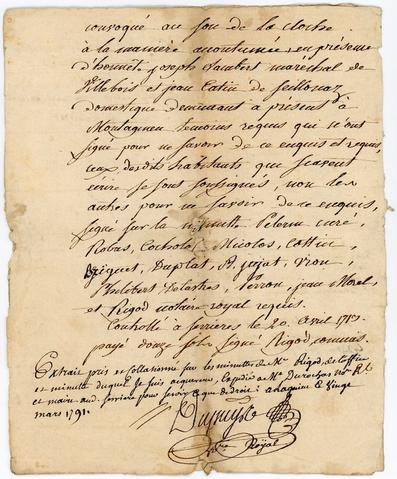 convoqué au son de la cloche
à la maniere acoutumée, en présence
d'honnete Joseph Lambert maréchal de
Villebois et jean Catin de Seillonaz
domestique demeurant à présent à
Montagneu temoins requis qui n'ont
signé pour ne savoir de ce enquis et requis,
ceux desdits habitants que scavent
écrire se sont soussignés, non les
autres pour ne savoir de ce enquis,
signé sur la minutte Pelerin curé,
Robas, Nicolas,
Briquet, Duplat, jujat,
Philibert Verron, jean Morel
et Rigod notaire royal requis.
Controllé à serrieres le 20 avril
payé douze sols signé Rigod commis.
Extrait pris et collationné sur les minuttes de Me Rigod,
et minutte duquel je suis acquereur, expedié a Me Durochas
pour servir a que de droit a vingt
mars 1791.
Royal